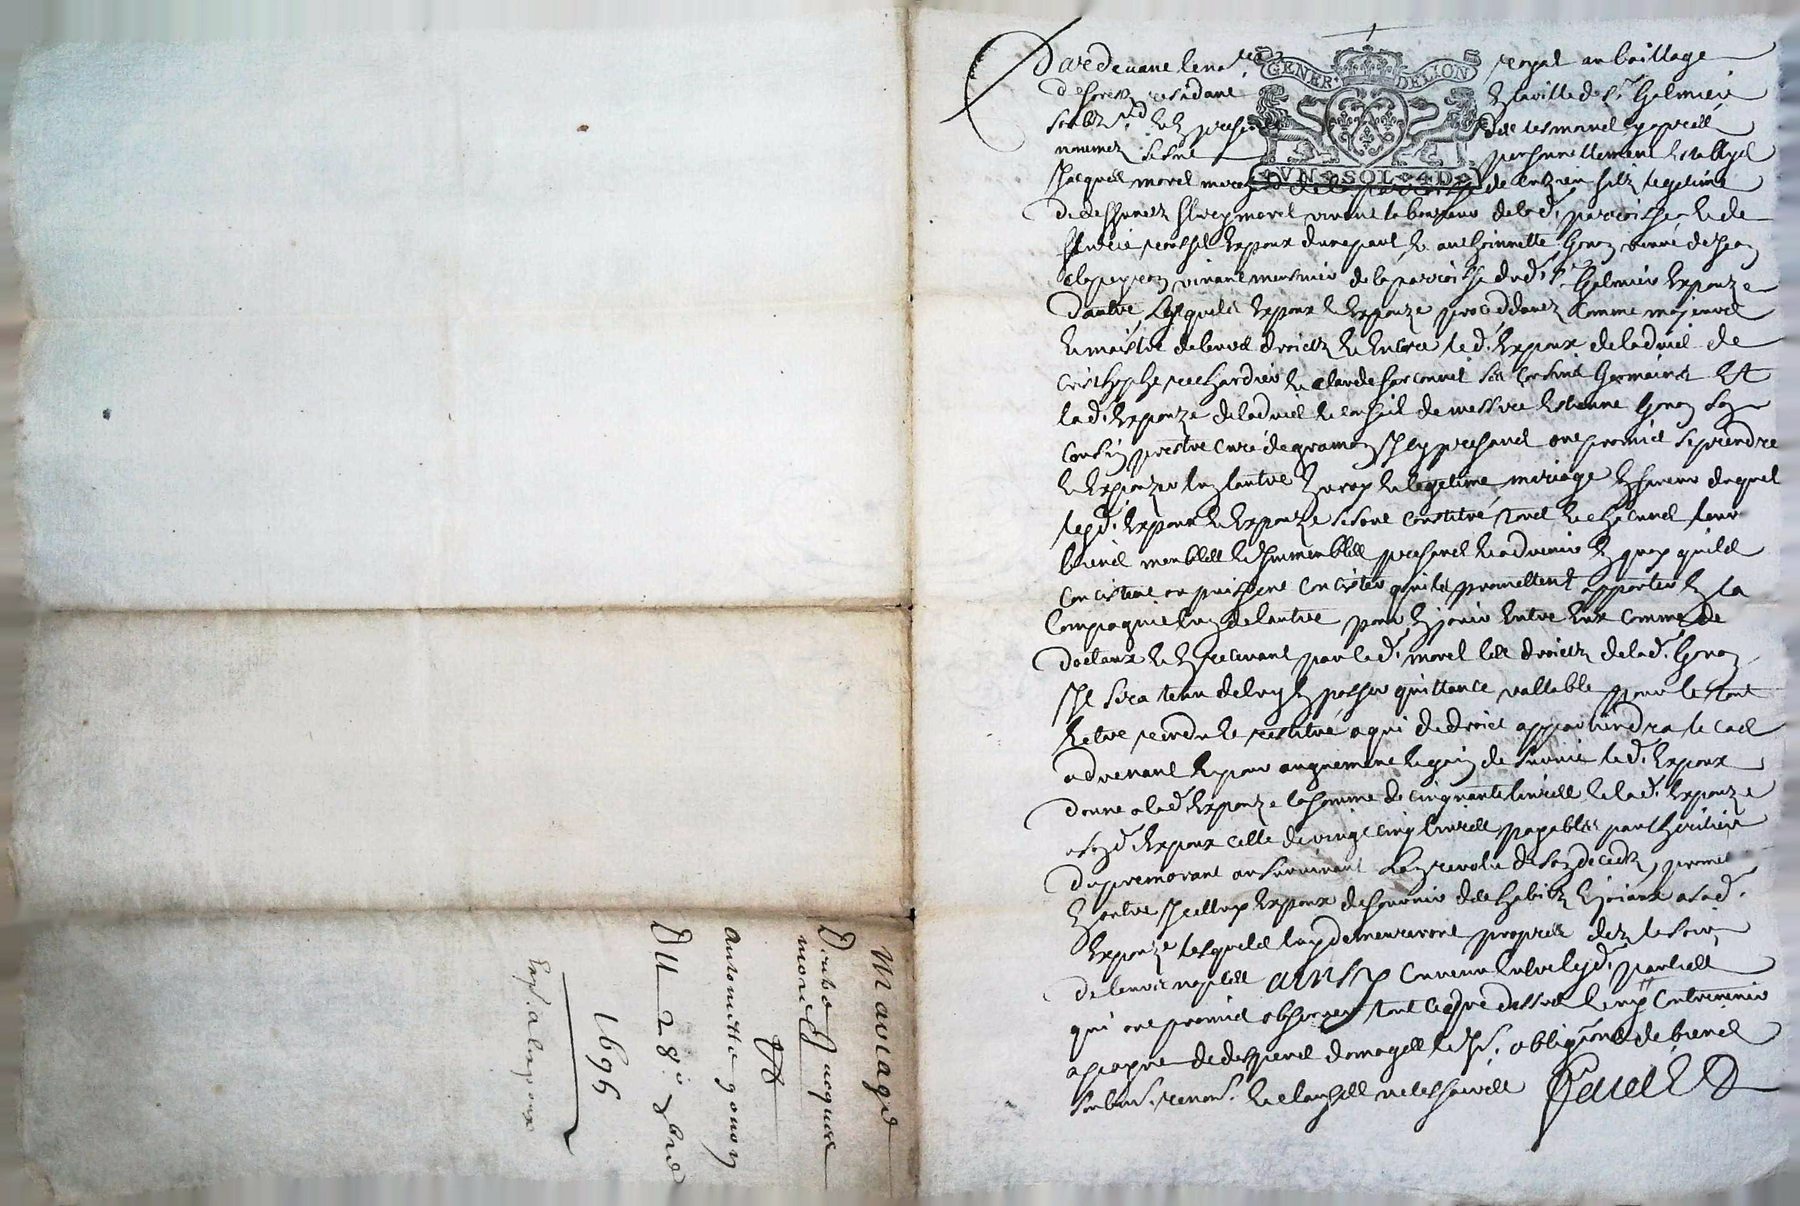 Pardevant le no.re royal au bailliage
de forestz residant en la ville de St Galmier
soubz.né et en presence des tesmoins cy apres
nommez se sont personnellement establys
GENER DELION
VN SOL 4 D
Jacques morel de la paroisse de filz legitime
de deffunctz morel vivant laboureur de lad. paroisse et de
espoux d'une part, et anthoinette Gonon vefve de Jean
vivant musnier de la paroisse dud. St Galmier espouze
d'autre, Lesquels espoux et espouze proceddantz comme majeurs
et maistre de leurs droictz et encore led. espoux de ladvis de
cristophe et Claude ses cousins Germains Et
lad. espouze de ladvis et conseil de messire estienne Gonon son
cousin prestre curé de gramon Icy presant ont promis se prendre
et espouzer l'un l'autre en vray et legitime mariage En faveur duquel
lesd. espoux et espouze se sont constitué tous et chacuns leurs
biens meubles et immeubles presants et advenir en quoy quils
concistent ou puissent concister qu'ils promettent apporter en la
Compagnie l'un de l'autre pour en jouir entre eux comme de
doctaux et en recevant par led. morel les droictz de lad. Gonon
Il sera tenu de luy en passer quittance vallable pour le tout
estre rendu et restitué a qui de droict appartiendra le cas
advenant et pour augment et gain de survie led. espoux
donne a lad. espouze la somme de cinquante livres et lad. espouze
a sond. espoux celle de vingt cinq livres payables par l'heritier
du premorant au survivant L'an revolu de son deceds, promet
en outre Icelluy espoux de fournir des habitz et joiaux a sad.
espouze lesquels luy demeureront propres dez le soir
de leurs nopces AINSY convenu entre lesd. parties
qui ont promis observer tout ce que dessus et ny contrevenir
a peyne de despens domages et Int. obligeons de biens
soubm. renon. et clauses necessaires
Mariage
D'entre Jacques
morel
Et
antoinette gonon
Du 28e
1696
Exp. a lespoux